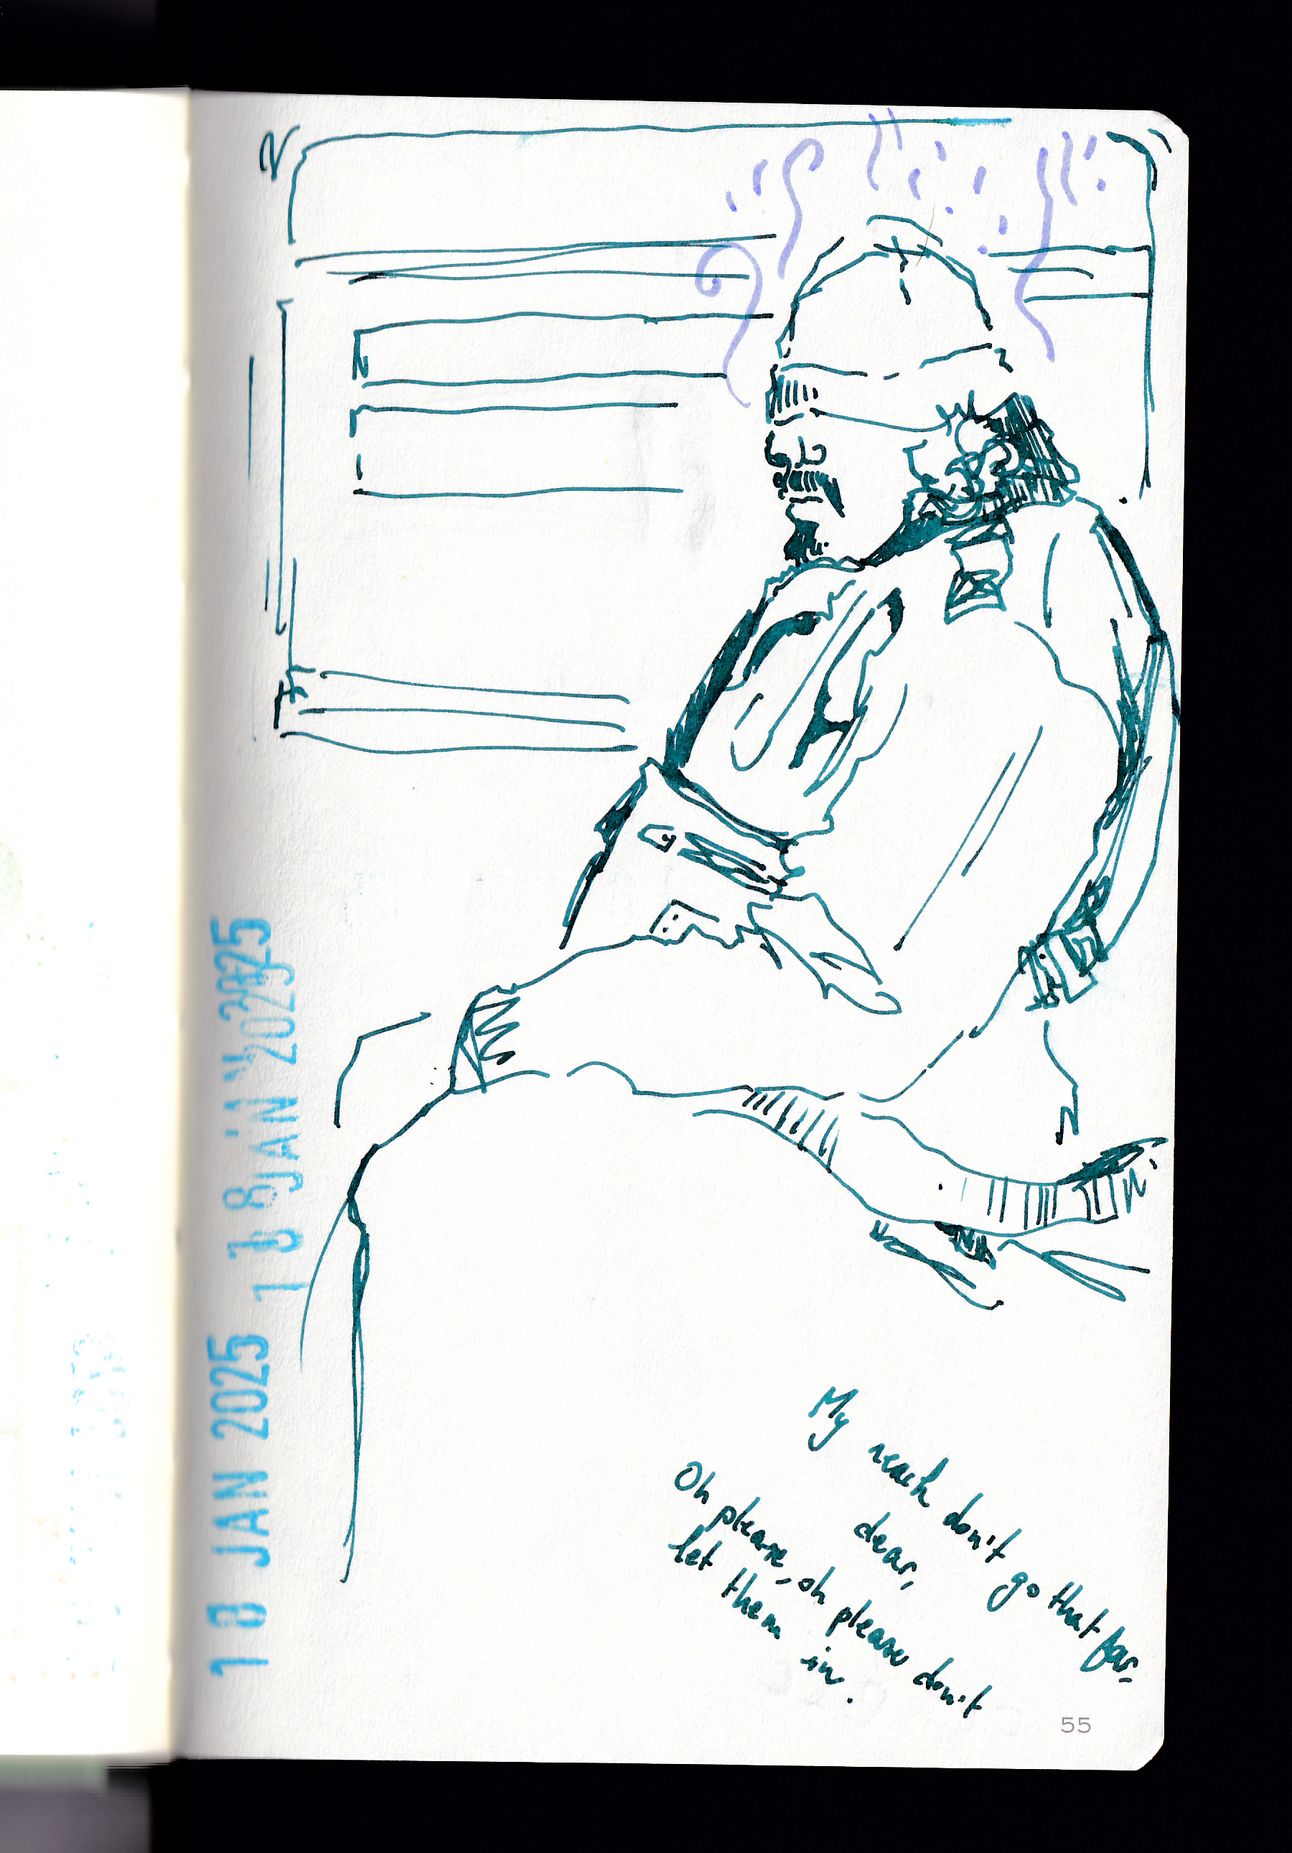 18 JAN 2025
18 JAN 2025
My reach don't go that far
dear,
Oh please, oh please don't
let them in.
55